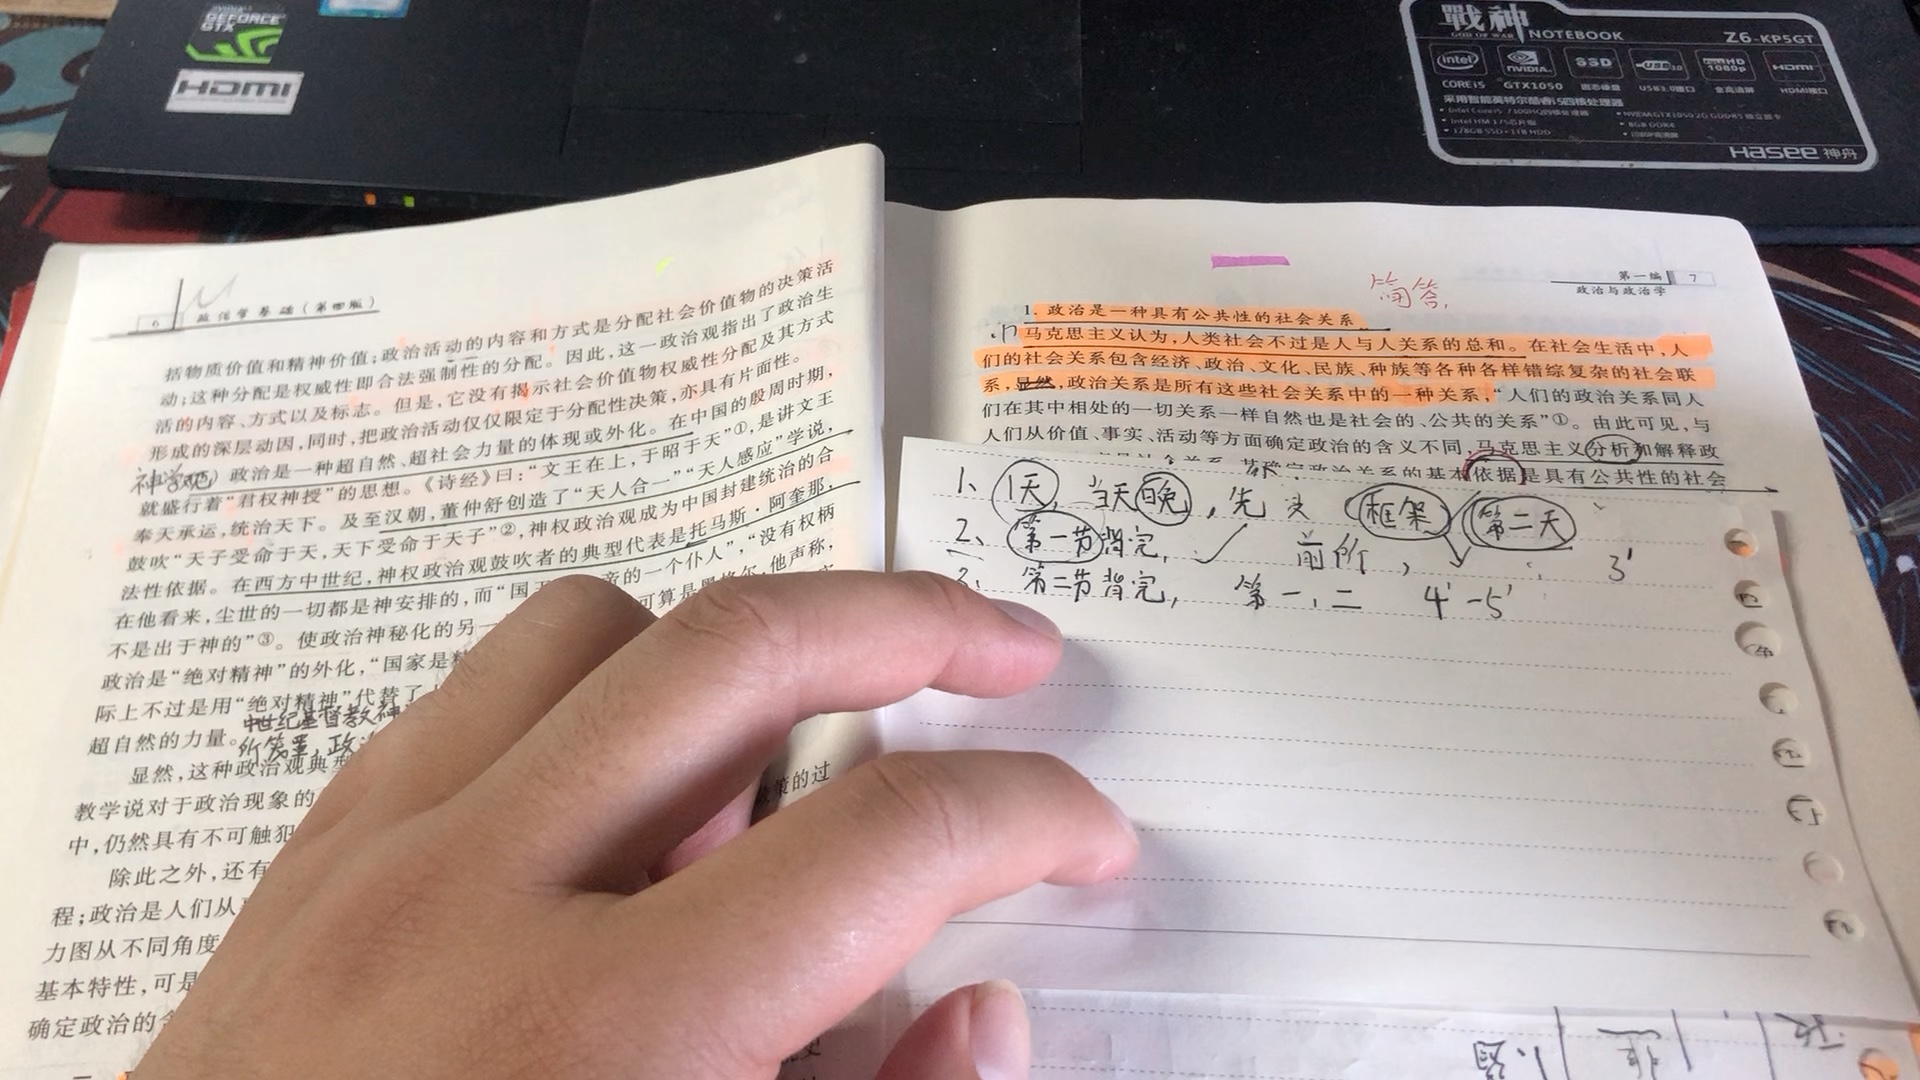 NVIDIA
GEFORCE
GTX
HDMI
戰神
GOD OF WAR
NOTEBOOK
Z6-KP5GT
intel
NVIDIA
SSD
USB3.0
FULL HD
1080p
HDMI
CORE i5
GTX1050
固态硬盘
USB3.0接口
全高清屏
HDMI接口
采用智能英特尔酷睿i5四核处理器
Intel Core i5 7300HQ四核处理器
Intel HM 175芯片组
128GB SSD+1TB HDD
NVIDIA GTX1050 2G GDDR5 独立显卡
8GB DDR4
1080P高清屏
Hasee 神舟
6
政治学基础(第四版)
括物质价值和精神价值;政治活动的内容和方式是分配社会价值物的决策活
动;这种分配是权威性即合法强制性的分配。因此,这一政治观指出了政治生
活的内容、方式以及标志。但是,它没有揭示社会价值物权威性分配及其方式
形成的深层动因,同时,把政治活动仅仅限定于分配性决策,亦具有片面性。
神学观
政治是一种超自然、超社会力量的体现或外化。在中国的殷周时期,
就盛行着“君权神授”的思想。《诗经》曰:“文王在上,于昭于天”①,是讲文王
奉天承运,统治天下。及至汉朝,董仲舒创造了“天人合一”“天人感应”学说,
鼓吹“天子受命于天,天下受命于天子”②,神权政治观成为中国封建统治的合
法性依据。在西方中世纪,神权政治观鼓吹者的典型代表是托马斯·阿奎那,
在他看来,尘世的一切都是神安排的,而“国王
帝的一个仆人”,“没有权柄
不是出于神的”③。使政治神秘化的另一
可算是黑格尔,他声称,
政治是“绝对精神”的外化,“国家是
际上不过是用“绝对精神”代替了
中世纪基督教神
超自然的力量。
所笼罩,政治
显然,这种政治观典型
教学说对于政治现象的
策的过
中,仍然具有不可触犯
除此之外,还有
程;政治是人们从
力图从不同角度
基本特性,可是
确定政治的含
第一编
7
政治与政治学
简答
1. 政治是一种具有公共性的社会关系
马克思主义认为,人类社会不过是人与人关系的总和。在社会生活中,人
们的社会关系包含经济、政治、文化、民族、种族等各种各样错综复杂的社会联
系,显然,政治关系是所有这些社会关系中的一种关系,“人们的政治关系同人
们在其中相处的一切关系一样自然也是社会的、公共的关系”①。由此可见,与
人们从价值、事实、活动等方面确定政治的含义不同,马克思主义分析和解释政
政治关系的基本依据是具有公共性的社会
1、1天,当天晚,先 框架 第二天
2、第一节背完, 前阶, 3'
3、第二节背完, 第一、二 4'-5'